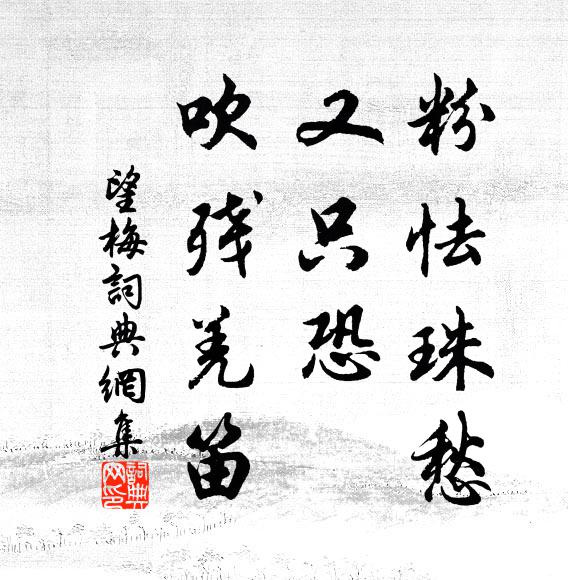 粉怯珠愁
又只恐
吹残羌笛
望梅詞典網集
詞典网印